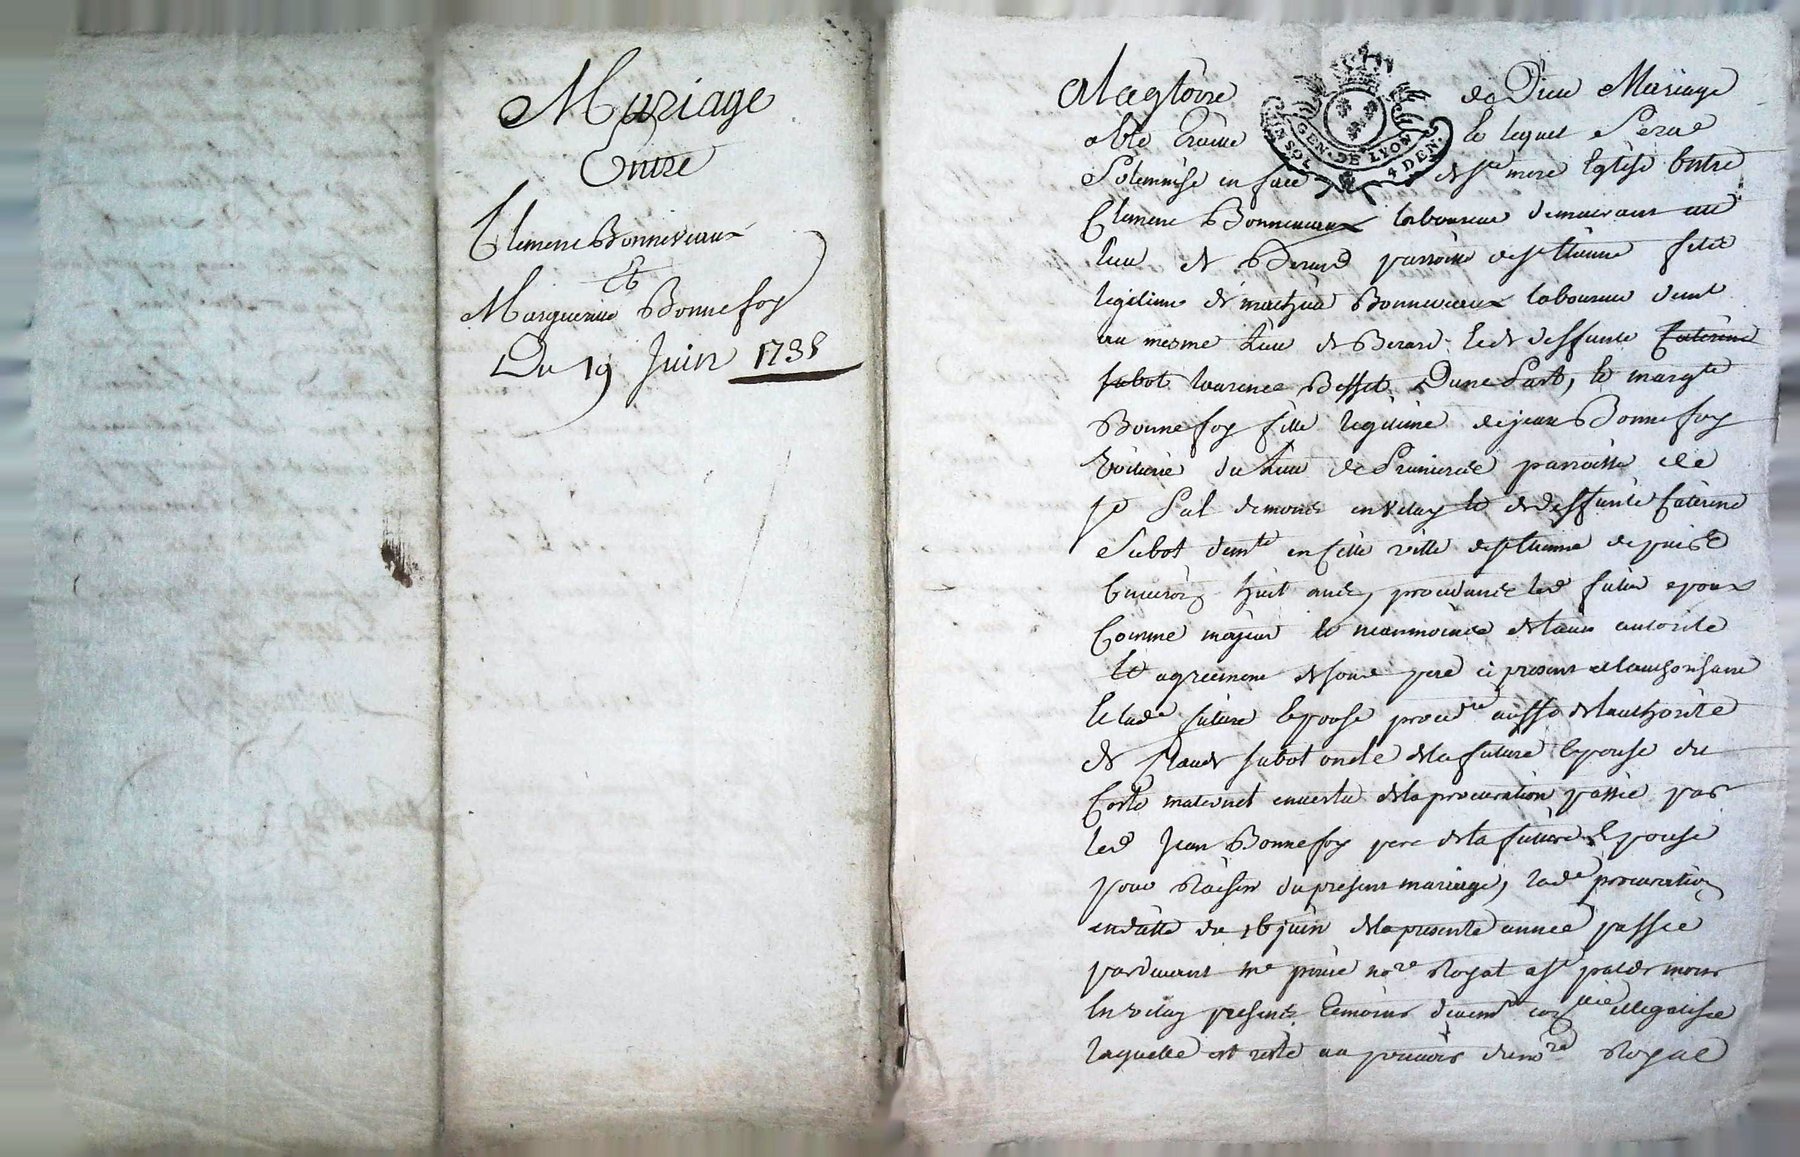 Mariage
Entre
Clemene Bonneveaux
Et
Marguerite Bonnefoy
Du 19 Juin 1735
Alagloire de Dieu Mariage
a Ete lequel Sera
Solemnise en face de Ste mere Eglise Entre
Clemene Bonneveaux laboureur demeurant au
lieu de Berard parroisse de St Etienne fils
legitime de mathieu Bonneveaux laboureur demt
au mesme lieu de Berard & de deffunte Caterine
subot laurence Besset Dune Part, & margte
Bonnefoy fille legitime de jean Bonnefoy
du lieu de parroisse de
St Pal demons en velay & de deffunte Caterine
Subot demte en cette ville de St Etienne depuis
Environ huit ans, procedants led futur epoux
Comme majeur & neanmoins de lauis autorite
Et agreement de son pere ci present & lauthorisant
& lade future Epouse procdte aussi de lauthorite
de Claude subot oncle de la future Epouse du
Costé maternel en vertu de la procuration passée par
led Jean Bonnefoy pere de la future Epouse
pour Raison du present mariage, lade procuration
en datte du 16 juin de la presente année passée
pardevant me nore Royal a St pal de mons
En velay presents temoins & legalisée
laquelle est resté au pouvoir du nore Royal
GEN. DE LYON
UN SOL 4 DEN.